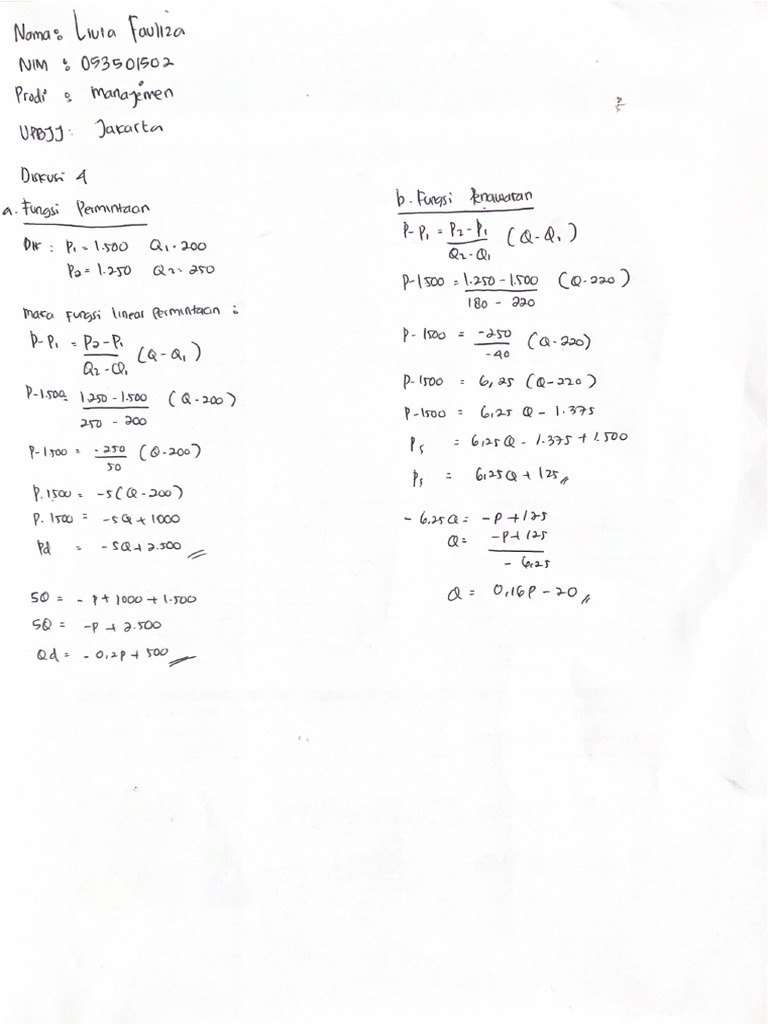 Nama: Livia Fauliza
NIM : 053501502
Prodi : manajemen
UPBJJ: Jakarta
Diskusi 4
a. Fungsi Permintaan
Dik : P₁ = 1.500 Q₁ = 200
P₂ = 1.250 Q₂ = 250
maka fungsi linear permintaan :
P-P₁ = P₂-P₁ / Q₂-Q₁ (Q-Q₁)
P-1.500 = 1.250 - 1.500 / 250 - 200 (Q-200)
P-1.500 = -250 / 50 (Q-200)
P-1500 = -5(Q-200)
P-1500 = -5Q+1000
Pd = -5Q+2.500
5Q = -P+1000+1.500
5Q = -P+2.500
Qd = -0,2P+500
b. Fungsi Penawaran
P-P₁ = P₂-P₁ / Q₂-Q₁ (Q-Q₁)
P-1500 = 1.250-1.500 / 180 - 220 (Q-220)
P-1500 = -250 / -40 (Q-220)
P-1500 = 6,25 (Q-220)
P-1500 = 6,25 Q - 1.375
Ps = 6,25Q - 1.375 + 1.500
Ps = 6,25Q + 125
-6.25Q = -P+125
Q = -P+125 / -6,25
Q = 0,16P-20